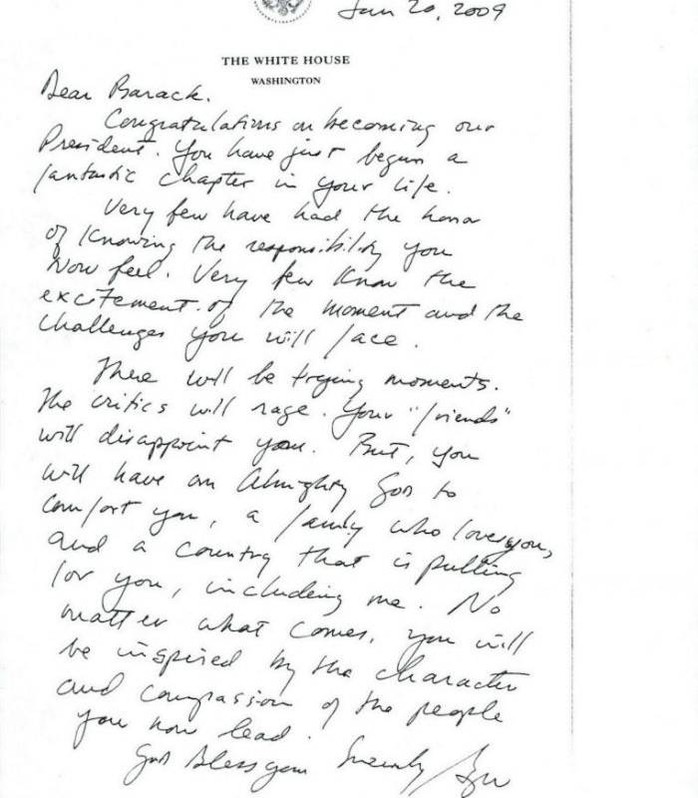 Jan 20, 2009
THE WHITE HOUSE
WASHINGTON
Dear Barack.
Congratulations on becoming our
President. You have just begun a
fantastic chapter in your life.
Very few have had the honor
of knowing the responsibility you
now feel. Very few know the
excitement of the moment and the
challenges you will face.
There will be trying moments.
The critics will rage. Your "friends"
will disappoint you. But, you
will have an Almighty God to
comfort you, a family who loves you,
and a country that is pulling
for you, including me. No
matter what comes, you will
be inspired by the character
and compassion of the people
you now lead.
God bless you Sincerely,